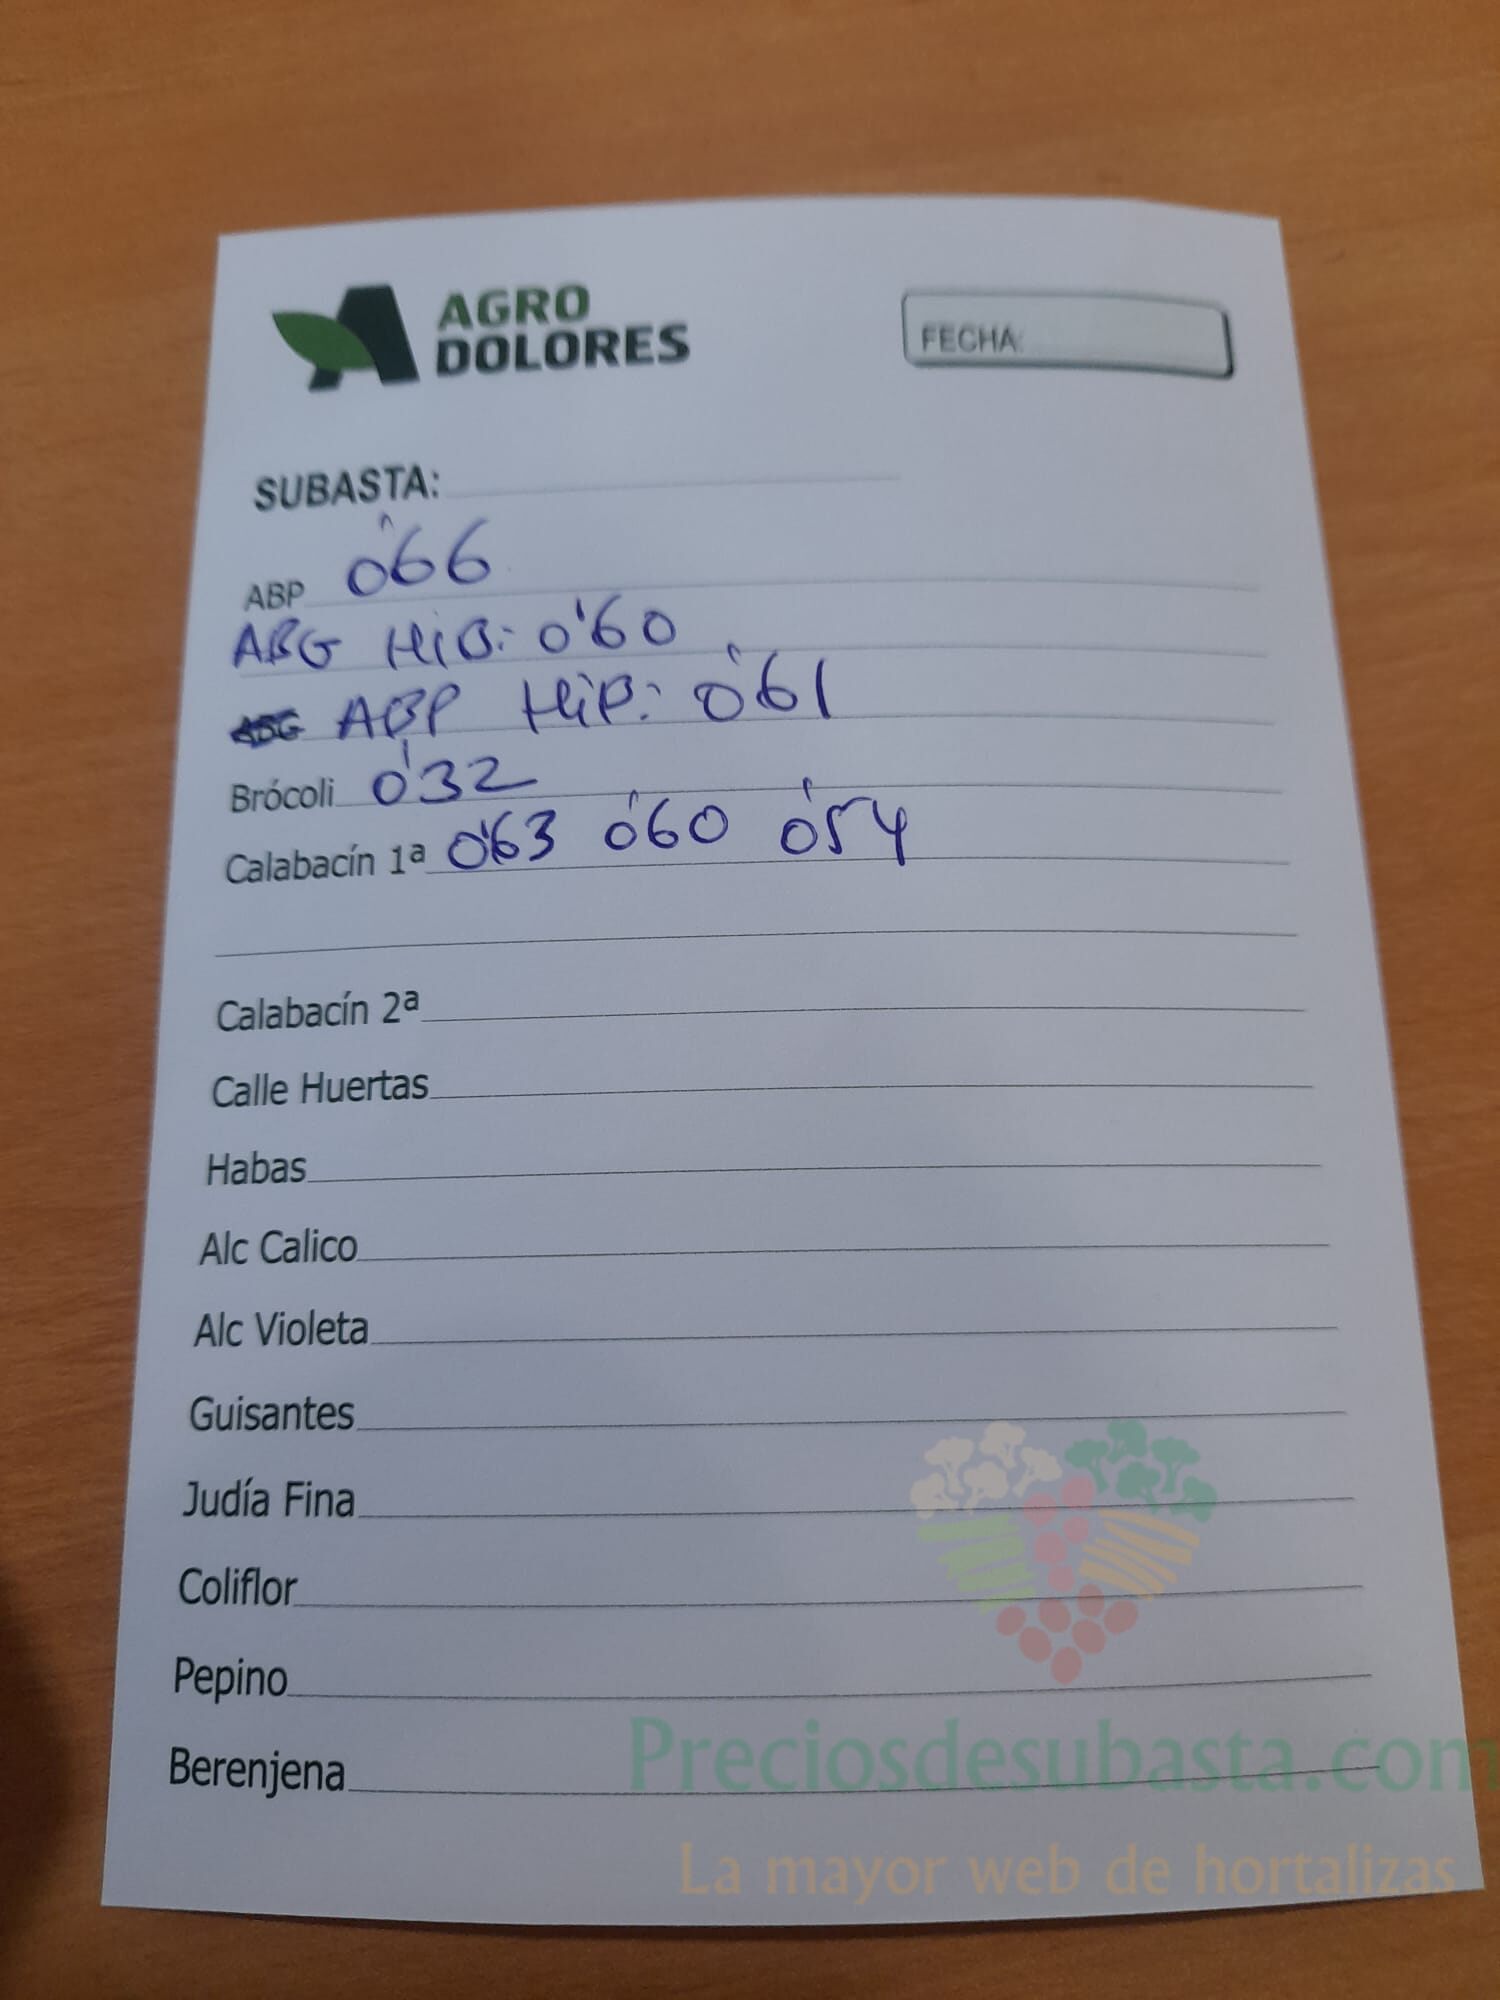 AGRO
DOLORES
FECHA:
SUBASTA:
ABP 0'66
ABG HiB: 0'60
ABG ABP HiB: 0'61
Brócoli 0'32
Calabacín 1ª 0'63 0'60 0'54
Calabacín 2ª
Calle Huertas
Habas
Alc Calico
Alc Violeta
Guisantes
Judía Fina
Coliflor
Pepino
Berenjena
Preciosdesubasta.com
La mayor web de hortalizas